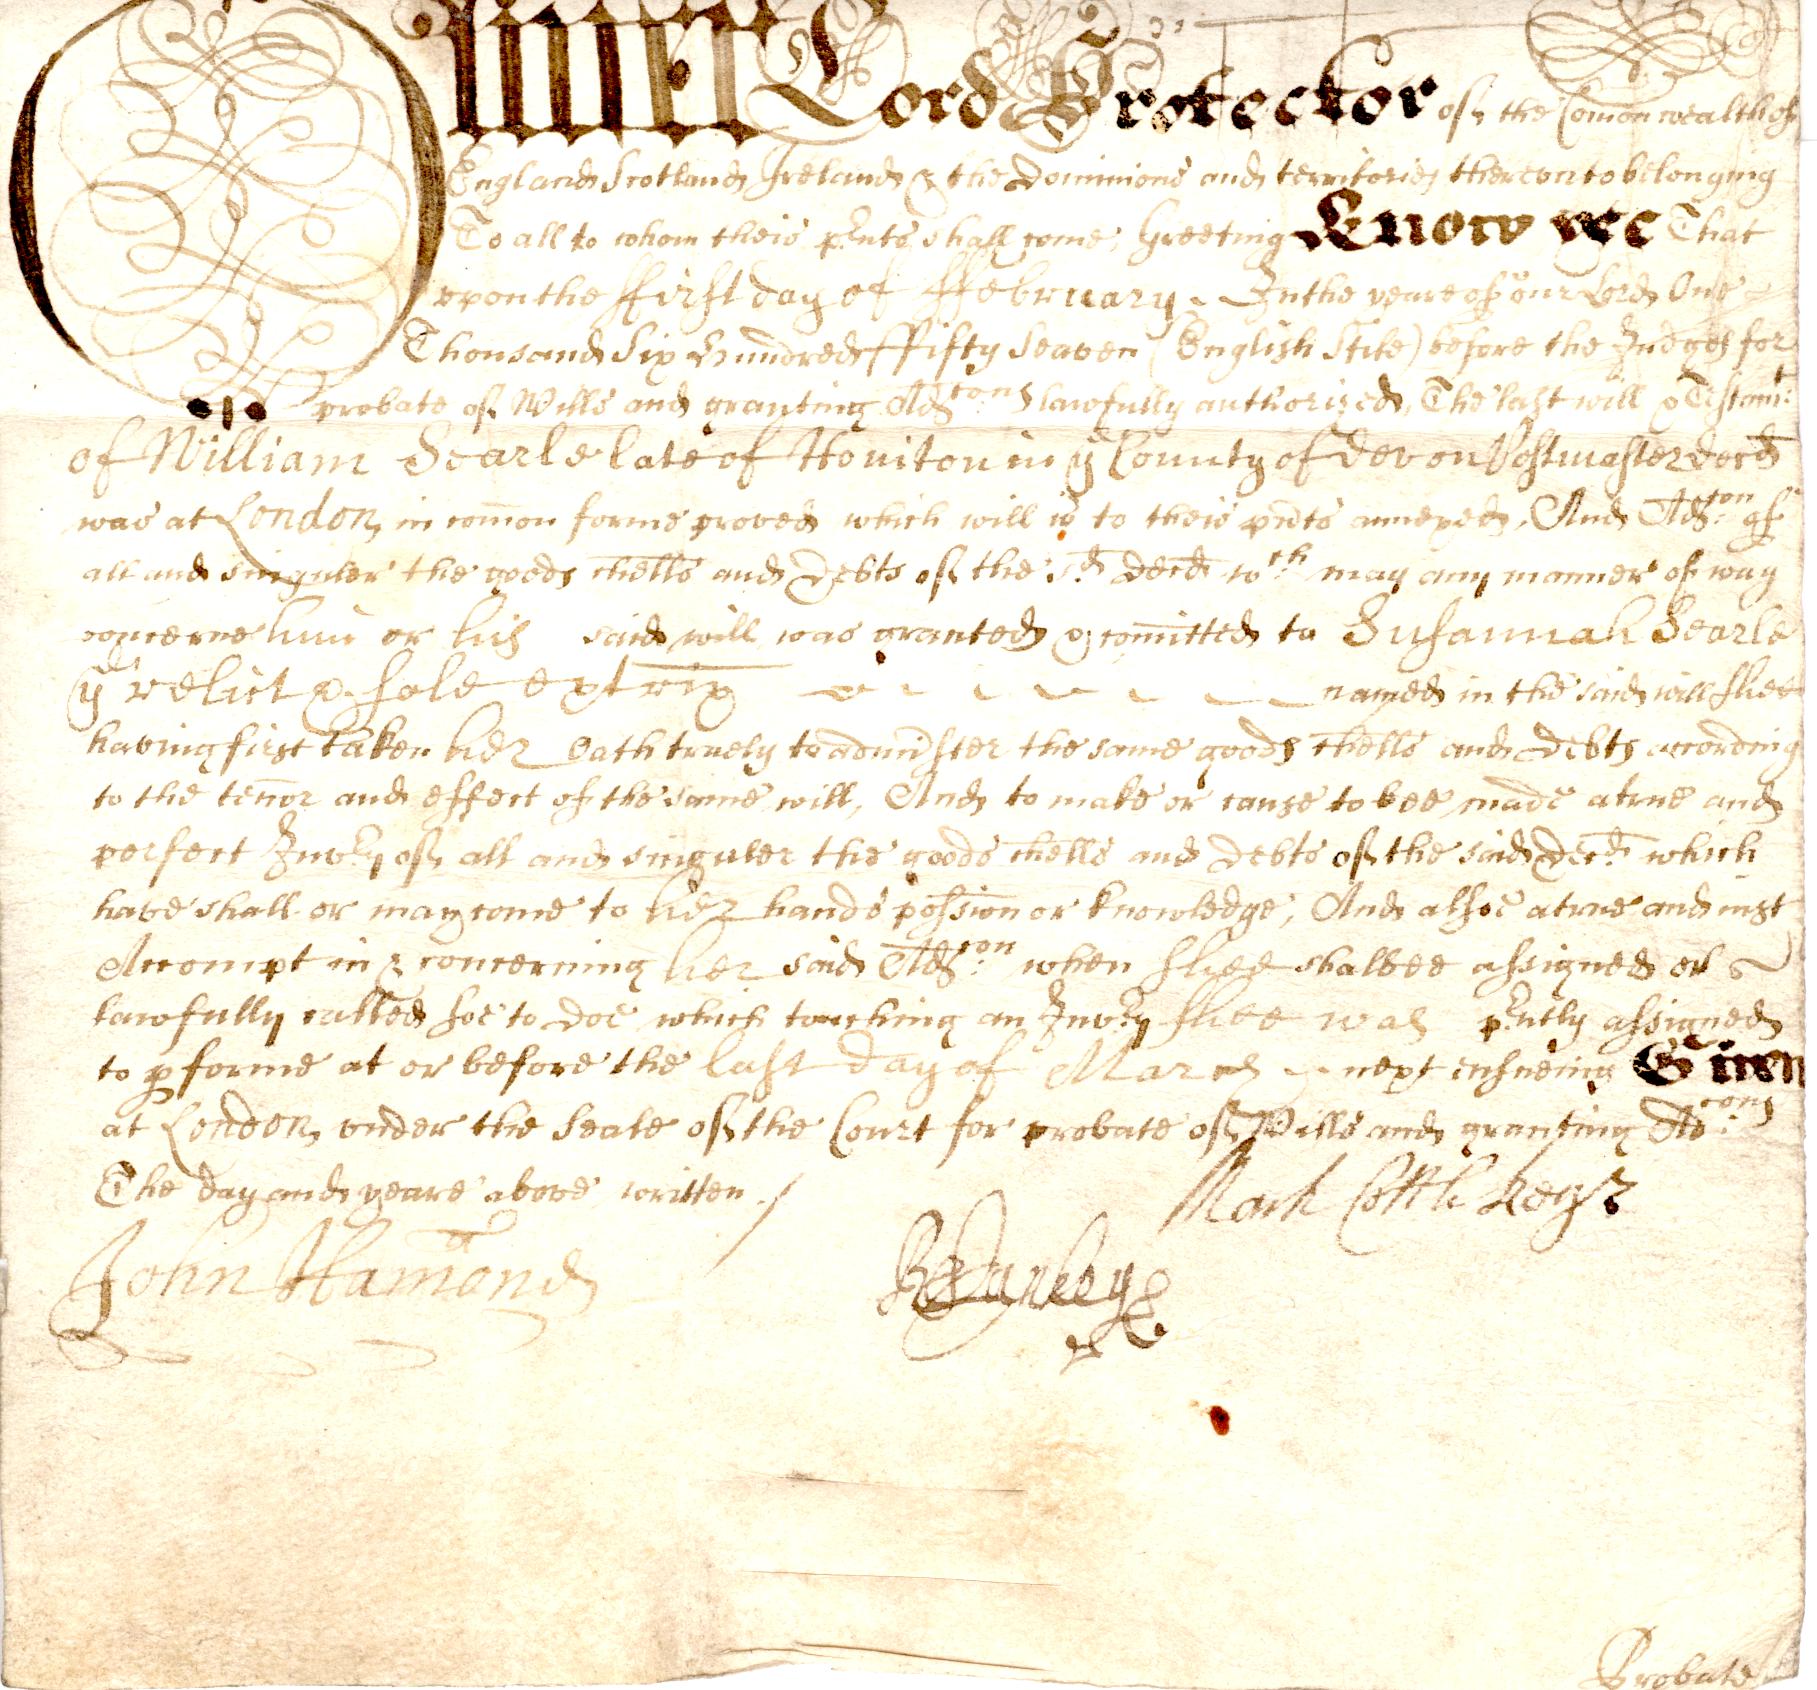 Oliver Lord Protector of the Com̄onwealth of
England Scotland Ireland & the Dominions and territories thereunto belonging
To all to whom theis p̱nts shall come, Greeting Know yee That
vpon the ffirst day of ffebruary In the yeare of our Lord One
Thousand Six Hundred ffifty Seaven (English Stile) before the Judges for
probate of Wills and granting Adcons lawfully authorized, The last will & Testamt
of William Searle late of Honiton in ye County of Devon Postmaster decd
was at London, in com̄on forme proved which will is to theis pnts annexed, And Adcon of
all and singuler the goods chells and Debts of the sd decd wch may any manner of way
concerne him or his said will was granted & com̄itted to Susannah Searle
ye relict & sole extrix named in the said will shee
having first taken her Oath truely to administer the same goods chells and Debts according
to the teno͞r and effect of the same will, And to make or cause to bee made a true and
perfect Invry of all and singuler the goods chells and Debts of the said decd which
have shall or may come to her hands possion or knowledge, And alsoe a true and iust
Accompt in & concerning her said Adcon when shee shalbee assigned or
lawfully called soe to doe which touching an Invry shee was p̱ntly assigned
to p̱forme at or before the last day of March next ensueing Given
at London, vnder the Seale of the Court for probate of Wills and granting Adcons
The day and yeare above written ./
Mark Cottle Regr
John Hamond
Probate